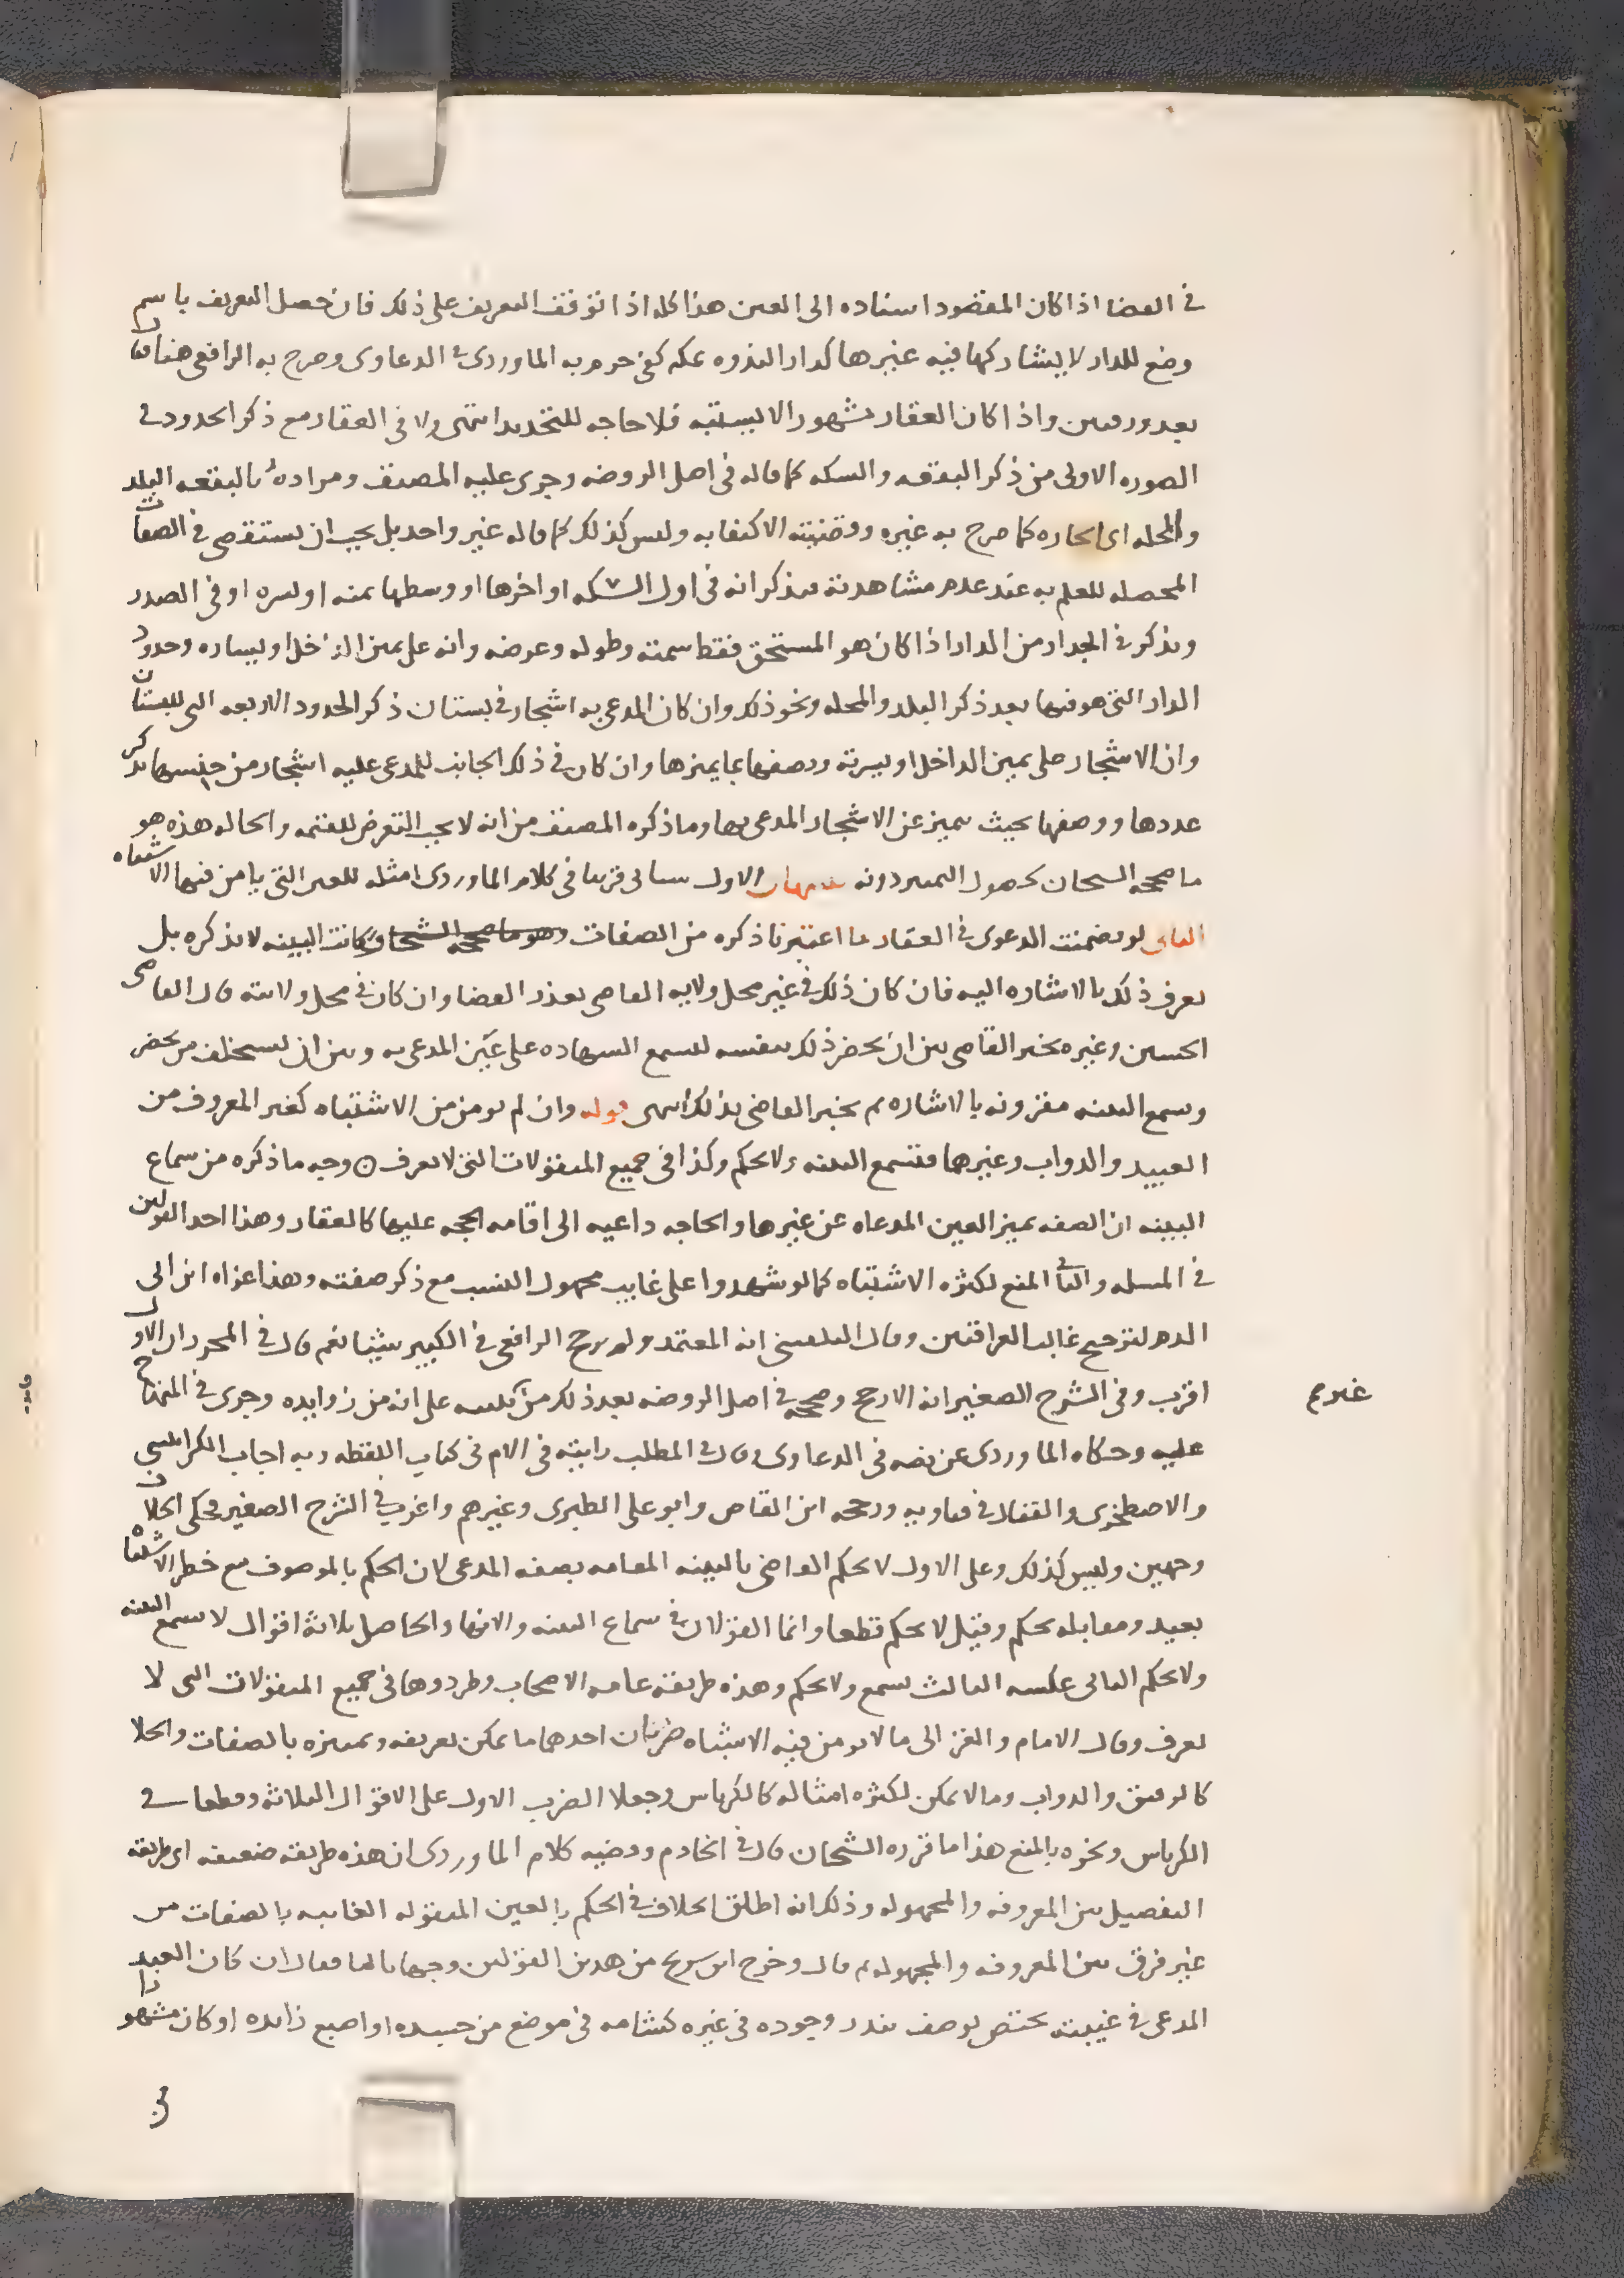 في القضا اذا كان المقصود اسناده الى العين هذا كله اذا توقف التعريف على ذلك فان حصل التعريف باسم
وضع للدار لا يشاركها فيه غيرها كدار الندوه بمكه كفى جزم به الماوردى في الدعاوى وصرح به الرافعى هنا فقال
بعد ورقتين واذا كان العقار مشهورا لا يشتبه فلا حاجه للتحديد انتهى ولا في العقار مع ذكر الحدود في
الصوره الاولى من ذكر البقعه والسكه كما قاله في اصل الروضه وجرى عليه المصنف ومراده بالبقعه البلد
والمحله اى الحاره كما صرح به غيره وقضيته الاكتفا به وليس كذلك كما قاله غير واحد بل يجب ان يستقصى في الصفات
المحصله للعلم به عند عدم مشاهدته فيذكر انه في اول السكه او اخرها او وسطها يمنه او يسره او في الصدر
ويذكر في الجدار من الدار اذا كان هو المستحق فقط سمته وطوله وعرضه وانه على يمين الداخل او يساره وحدود
الدار التي هو فيها بعد ذكر البلد والمحله ونحو ذلك وان كان المدعى به اشجار في بستان ذكر الحدود الاربعه التي للبستان
وان الاشجار على يمين الداخل او يسرته ووصفها بما يميزها وان كان في ذلك الجانب للمدعى عليه اشجار من جنسها ذكر
عددها ووصفها بحيث يتميز عن الاشجار المدعى بها وما ذكره المصنف من انه لا يجب التعرض للقيمه والحاله هذه هو
ما صححه الشيخان لحصول التمييز دونه تنبيهان الاول سياتى قريبا في كلام الماوردى امثله للعين التي يامن فيها الاشتباه
الثانى لو تضمنت الدعوى في العقار ما اعتبرنا ذكره من الصفات وهو ما صححه الشيخان وكانت البينه لا تذكره بل
تعرف ذلك بالاشاره اليه فان كان ذلك في غير محل ولايه القاضى تعذر القضا وان كان في محل ولايته قال القاضى
الحسين وغيره يخير القاضى بين ان يحضر ذلك بنفسه ليسمع الشهاده على عين المدعى به وبين ان يستخلف من يحضر
ويسمع البينه مقرونه بالاشاره ثم يخبر القاضى بذلك انتهى قوله وان لم يومن من الاشتباه كغير المعروف من
العبيد والدواب وغيرها فتسمع البينه ولا يحكم وكذا في جميع المنقولات التي لا تعرف ۞ وجه ما ذكره من سماع
البينه ان الصفه تميز العين المدعاه عن غيرها والحاجه داعيه الى اقامه الحجه عليها كالعقار وهذا احد القولين
في المسله والثانى المنع لكثره الاشتباه كما لو شهدوا على غايب مجهول النسب مع ذكر صفته وهذا عزاه ابن ابى
الدم لترجيح غالب العراقيين وقال البلقينى انه المعتمد ولم يرجح الرافعى في الكبير شيئا نعم قال في المحرر ان الاول
اقرب وفي الشرح الصغير انه الارجح وصححه في اصل الروضه بعد ذلك من تنبيه على انه من زوايده وجرى في المنهاج
غيرم
عليه وحكاه الماوردى عن نصه في الدعاوى وقال في المطلب رايته في الام في كتاب اللقطه وبه اجاب الكرابيسى
والاصطخرى والقفال في فتاويه ورجحه ابن القاص وابو على الطبرى وغيرهم واغرب في الشرح الصغير فحكى الخلاف
وجهين وليس كذلك وعلى الاول لا يحكم القاضى بالبينه القايمه بصفه المدعى لان الحكم بالموصوف مع خطر الاشتباه
بعيد ومقابله يحكم وقيل لا يحكم قطعا وانما القولان في سماع البينه والانها والحاصل ثلاثه اقوال لا تسمع البينه
ولا يحكم الثانى عكسه الثالث تسمع ولا يحكم وهذه طريقه عامه الاصحاب وطردوها في جميع المنقولات التي لا
تعرف وقال الامام والغزالى ما لا يومن فيه الاشتباه ضربان احدهما ما يمكن تعريفه وتمييزه بالصفات والحلا
كالرقيق والدواب وما لا يمكن لكثره امثاله كالكرباس وجعلا الضرب الاول على الاقوال الثلاثه وقطعا في
الكرباس ونحوه بالمنع هذا ما قرره الشيخان قال في الخادم وقضيه كلام الماوردى ان هذه طريقه ضعيفه اى طريقه
التفصيل بين المعروفه والمجهوله وذلك انه اطلق الخلاف في الحكم بالعين المنقوله الغايبه بالصفات من
غير فرق بين المعروفه والمجهوله ثم قال وخرج ابن سريج من هذين القولين وجها ثالثا فقال ان كان العبد
المدعى في غيبته يختص بوصف يندر وجوده في غيره كشامه في موضع من جسده او اصبع زايده او كان مشهورا
في